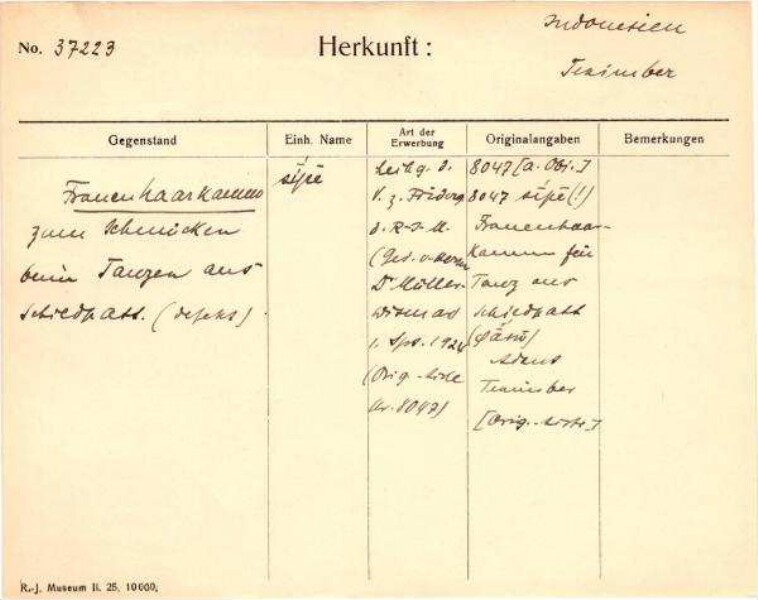 Indonesien
No. 37223 Herkunft:
Tanimber
Gegenstand
Einh. Name
Art der Erwerbung
Originalangaben
Bemerkungen
Frauenhaarkamm
zum Schmücken
beim Tanzen aus
Schildpatt. (defekt)
sípe
Leihg. d.
V. z. Förderg
d. R-J-M.
(Ges. v. Herrn
Dr Müller-
Wismar
(Orig.-Liste
Nr. 8047)
8047 [a. Obj.]
8047 sípe (!)
Frauenhaar-
kamm für
Tanz aus
Schildpatt
Tanimber
[Orig.-Liste]
R.-J. Museum II. 25, 10000;